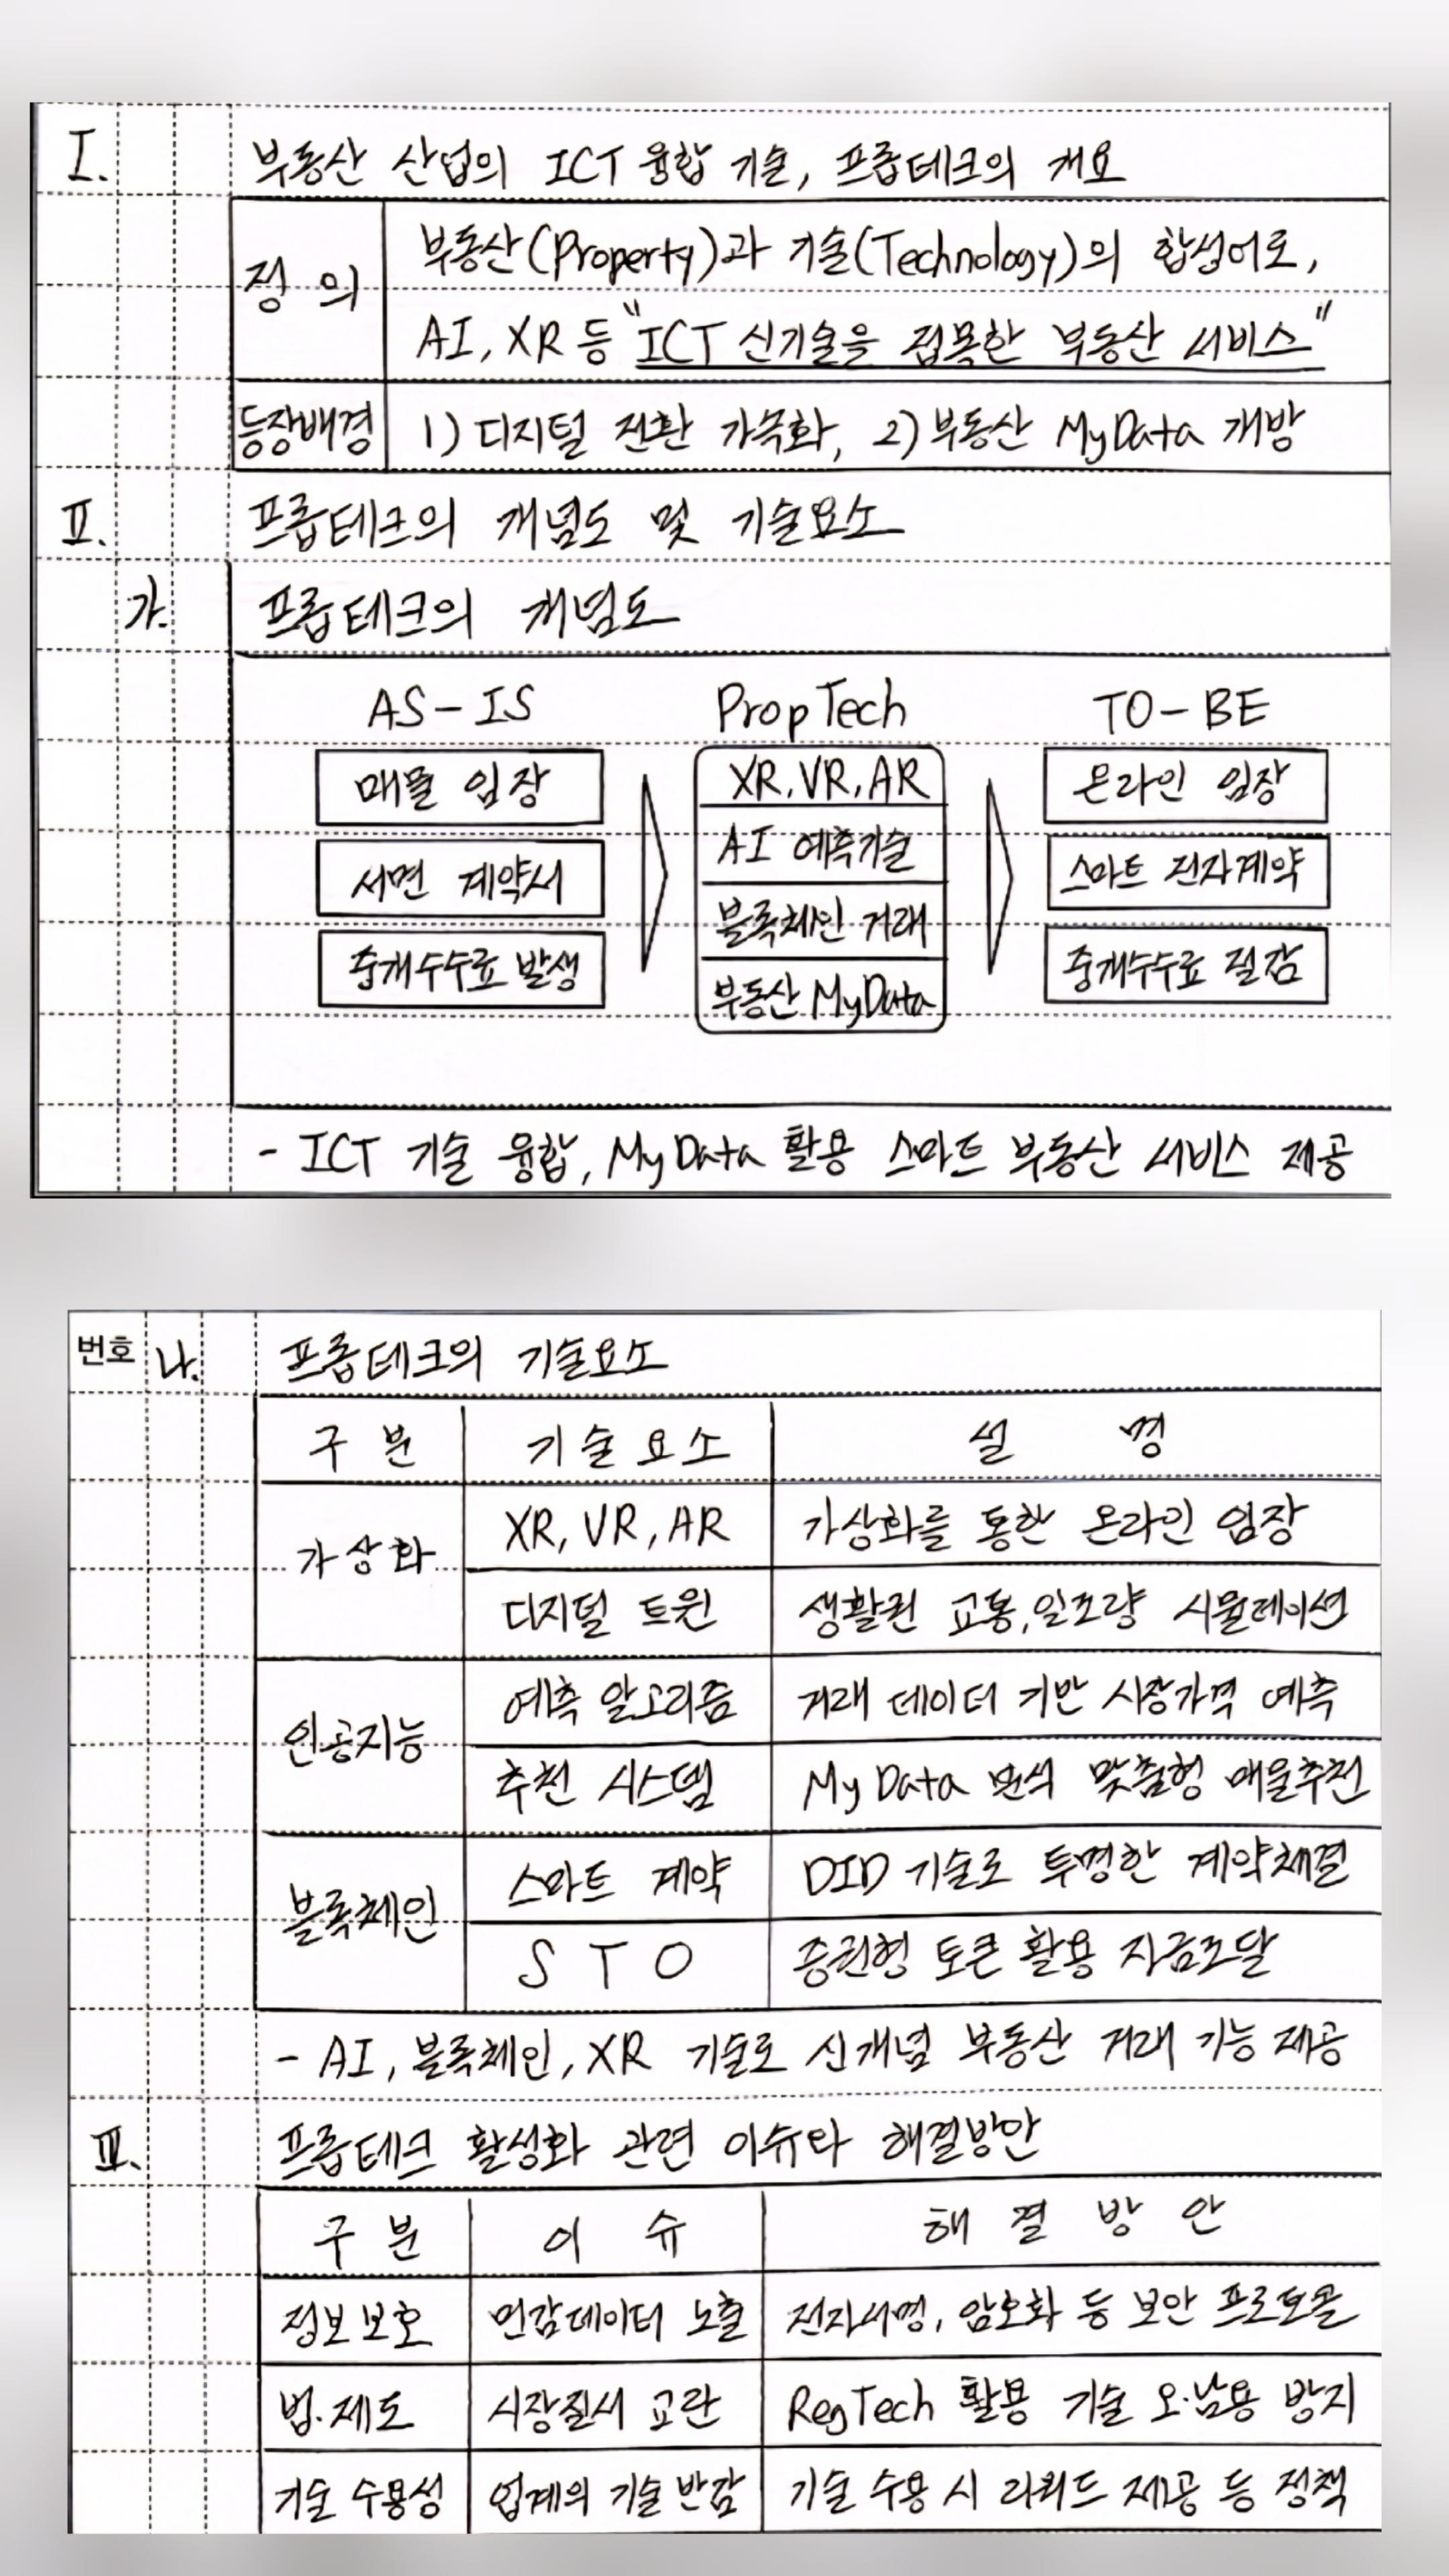 I. 부동산 산업의 ICT 융합 기술, 프롭테크의 개요
정 의
부동산(Property)과 기술(Technology)의 합성어로,
AI, XR 등 "ICT 신기술을 접목한 부동산 서비스"
등장배경 1) 디지털 전환 가속화, 2) 부동산 MyData 개방
II. 프롭테크의 개념도 및 기술요소
가. 프롭테크의 개념도
AS-IS PropTech TO-BE
매물 임장 XR, VR, AR 온라인 임장
AI 예측기술
서면 계약서 스마트 전자계약
블록체인 거래
중개수수료 발생 중개수수료 절감
부동산 MyData
- ICT 기술 융합, MyData 활용 스마트 부동산 서비스 제공
번호 나. 프롭테크의 기술요소
구 분 기술요소 설 명
가상화 XR, VR, AR 가상화를 통한 온라인 임장
디지털 트윈 생활권 교통, 일조량 시뮬레이션
인공지능 예측 알고리즘 거래 데이터 기반 시장가격 예측
추천 시스템 MyData 분석 맞춤형 매물추천
블록체인 스마트 계약 DID 기술로 투명한 계약체결
STO 증권형 토큰 활용 자금조달
- AI, 블록체인, XR 기술로 신개념 부동산 거래 기능 제공
III. 프롭테크 활성화 관련 이슈와 해결방안
구 분 이 슈 해 결 방 안
정보보호 민감데이터 노출 전자서명, 암호화 등 보안 프로토콜
법·제도 시장질서 교란 RegTech 활용 기술 오·남용 방지
기술 수용성 업계의 기술 반감 기술 수용 시 리워드 제공 등 정책